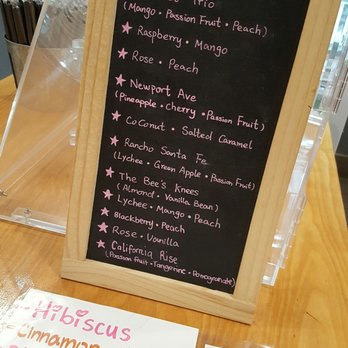 Trio
(Mango • Passion Fruit • Peach)
Raspberry • Mango
Rose • Peach
Newport Ave
(Pineapple • Cherry • Passion Fruit)
Coconut • Salted Caramel
Rancho Santa Fe
(Lychee • Green Apple • Passion Fruit)
The Bee's Knees
(Almond • Vanilla Bean)
Lychee • Mango • Peach
Blackberry • Peach
Rose • Vanilla
California Rise
(Passion fruit • Tangerine • Pomegranate)
Hibiscus
Cinnamon